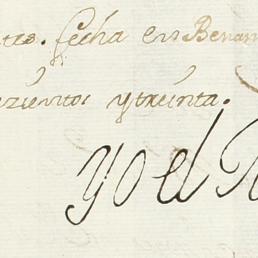 fecha en Benav
zientos y treinta.
Yo el R